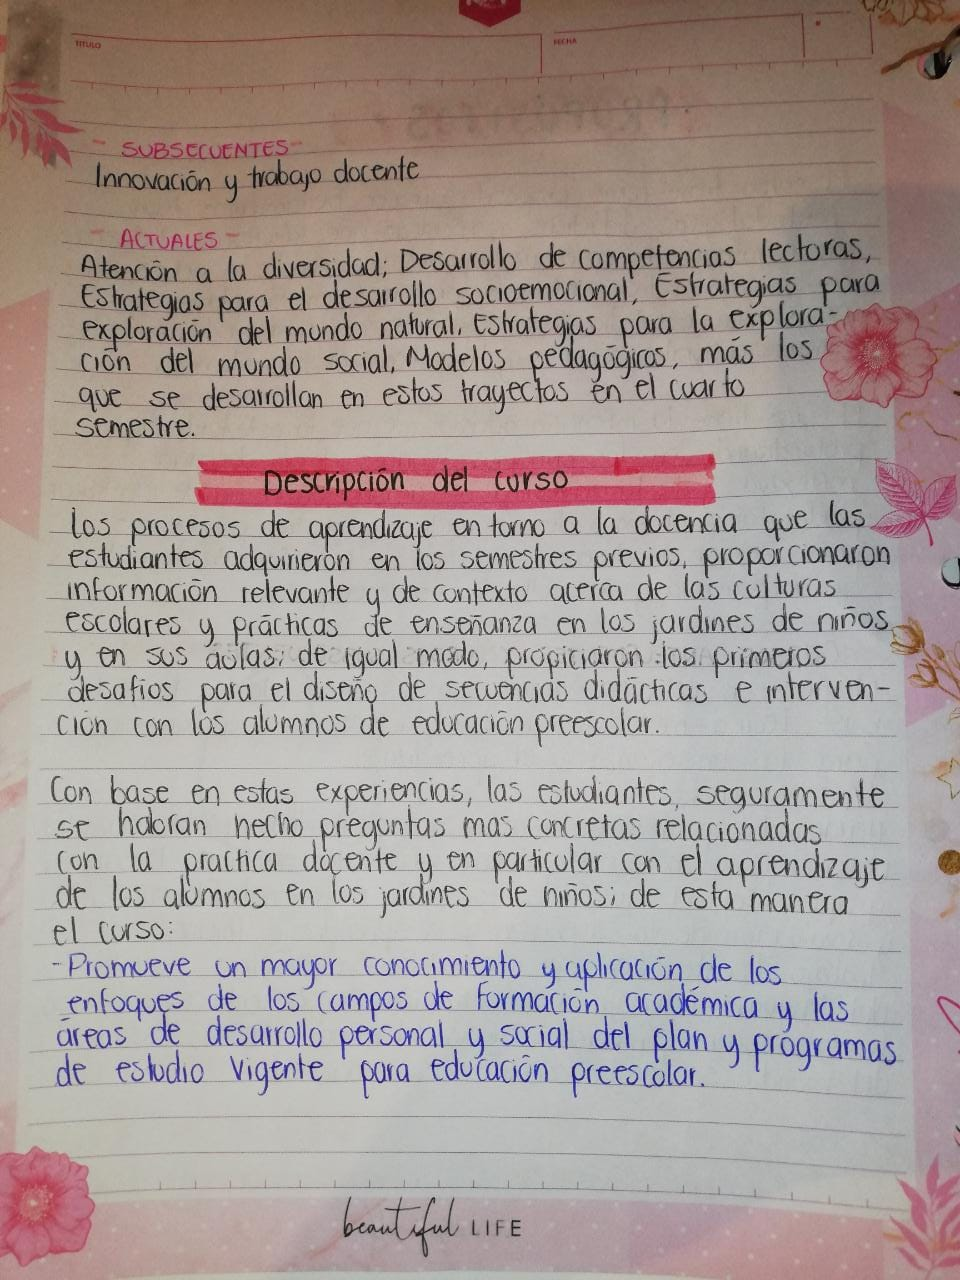 TITULO
FECHA
- SUBSECUENTES -
Innovación y trabajo docente
- ACTUALES -
Atención a la diversidad; Desarrollo de competencias lectoras,
Estrategias para el desarrollo socioemocional, Estrategias para
exploración del mundo natural, Estrategias para la explora-
ción del mundo social, Modelos pedagógicos, más los
que se desarrollan en estos trayectos en el cuarto
semestre.
Descripción del curso
Los procesos de aprendizaje en torno a la docencia que las
estudiantes adquirieron en los semestres previos, proporcionaron
información relevante y de contexto acerca de las culturas
escolares y prácticas de enseñanza en los jardines de niños
y en sus aulas; de igual modo, propiciaron los primeros
desafíos para el diseño de secuencias didácticas e interven-
ción con los alumnos de educación preescolar.
Con base en estas experiencias, las estudiantes, seguramente
se habran hecho preguntas mas concretas relacionadas
con la practica docente y en particular con el aprendizaje
de los alumnos en los jardines de niños; de esta manera
el curso:
- Promueve un mayor conocimiento y aplicación de los
enfoques de los campos de formación académica y las
áreas de desarrollo personal y social del plan y programas
de estudio vigente para educación preescolar.
beautiful LIFE